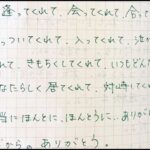 逢ってくれて、会ってくれて、合って
っついてくれて、入ってくれて、
れて、きもちくしてくれて、いつもどん
なたらしく居てくれて、対峙してくれ
当にほんとに、ほんとうに、ありが
から。ありがとう。